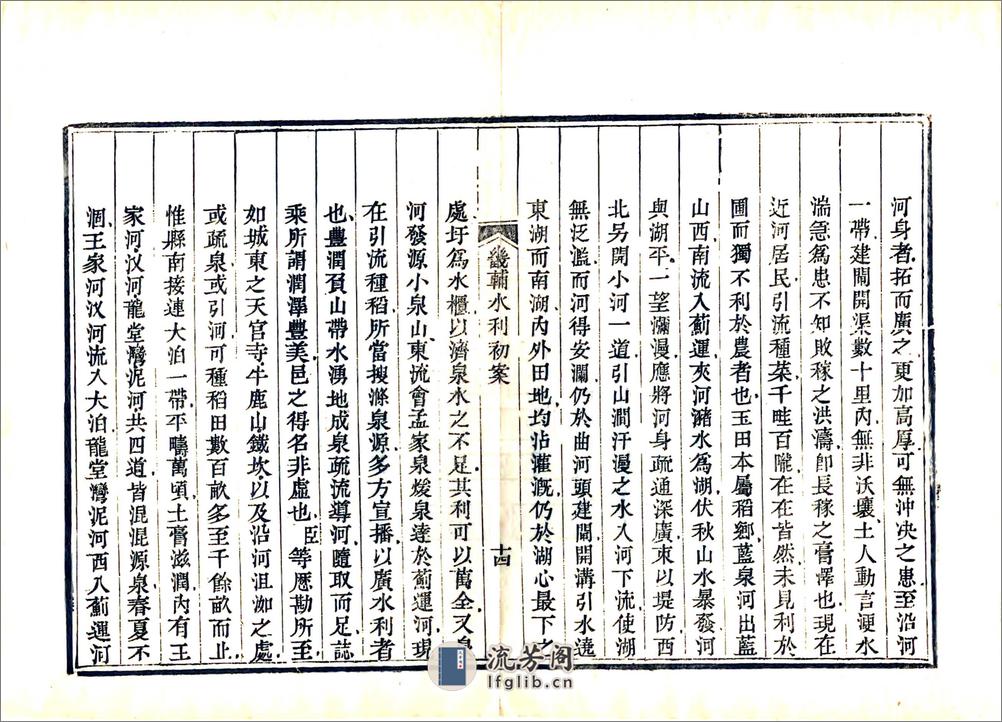 河身者拓而廣之更加高厚可無沖决之患至沿河
一帶建閘開渠數十里內無非沃壤土人動言溲水
湍急爲患不知敗稼之洪濤卽長稼之膏澤也現在
近河居民引流種菜千畦百隴在在皆然未見利於
圃而獨不利於農者也玉田本屬稻鄉藍泉河出藍
山西南流入薊運夾河瀦水爲湖伏秋山水暴發河
與湖平一望瀰漫應將河身疏通深廣東以堤防西
北另開小河一道引山澗汙漫之水入河下流使湖
無泛濫而河得安瀾仍於曲河頭建閘開溝引水達
東湖而南湖內外田地均沾灌漑仍於湖心最下之
畿輔水利初案
十四
處圩爲水櫃以濟泉水之不足其利可以萬全又泉
河發源小泉山東流會孟家泉煖泉達於薊運河現
在引流種稻所當搜滌泉源多方宣播以廣水利者
也豐潤負山帶水湧地成泉疏流導河隨取而足誌
乘所謂潤澤豐美邑之得名非虛也臣等歷勘所至
如城東之天宮寺牛鹿山鐵坎以及沿河沮洳之處
或疏泉或引河可種稻田數百畝多至千餘畝而止
惟縣南接連大泊一帶平疇萬頃土膏滋潤內有王
家河汊河龍堂灣泥河共四道皆混混源泉春夏不
涸王家河汊河流入大泊龍堂灣泥河西入薊運河
流芳阁
lfglib.cn